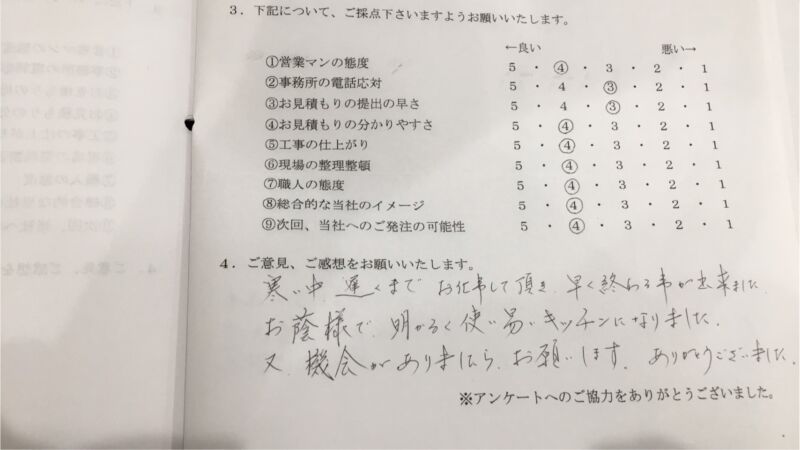 3．下記について、ご採点下さいますようお願いいたします。
←良い　悪い→
①営業マンの態度　5・④・3・2・1
②事務所の電話応対　5・4・③・2・1
③お見積もりの提出の早さ　5・4・③・2・1
④お見積もりの分かりやすさ　5・④・3・2・1
⑤工事の仕上がり　5・④・3・2・1
⑥現場の整理整頓　5・④・3・2・1
⑦職人の態度　5・④・3・2・1
⑧総合的な当社のイメージ　5・④・3・2・1
⑨次回、当社へのご発注の可能性　5・④・3・2・1
4．ご意見、ご感想をお願いいたします。
寒い中 遅くまで お仕事して頂き、早く終わる事が出来ました
お蔭様で、明かるく使い易いキッチンになりました。
又、機会がありましたら、お願いします。ありがとうございました。
※アンケートへのご協力をありがとうございました。